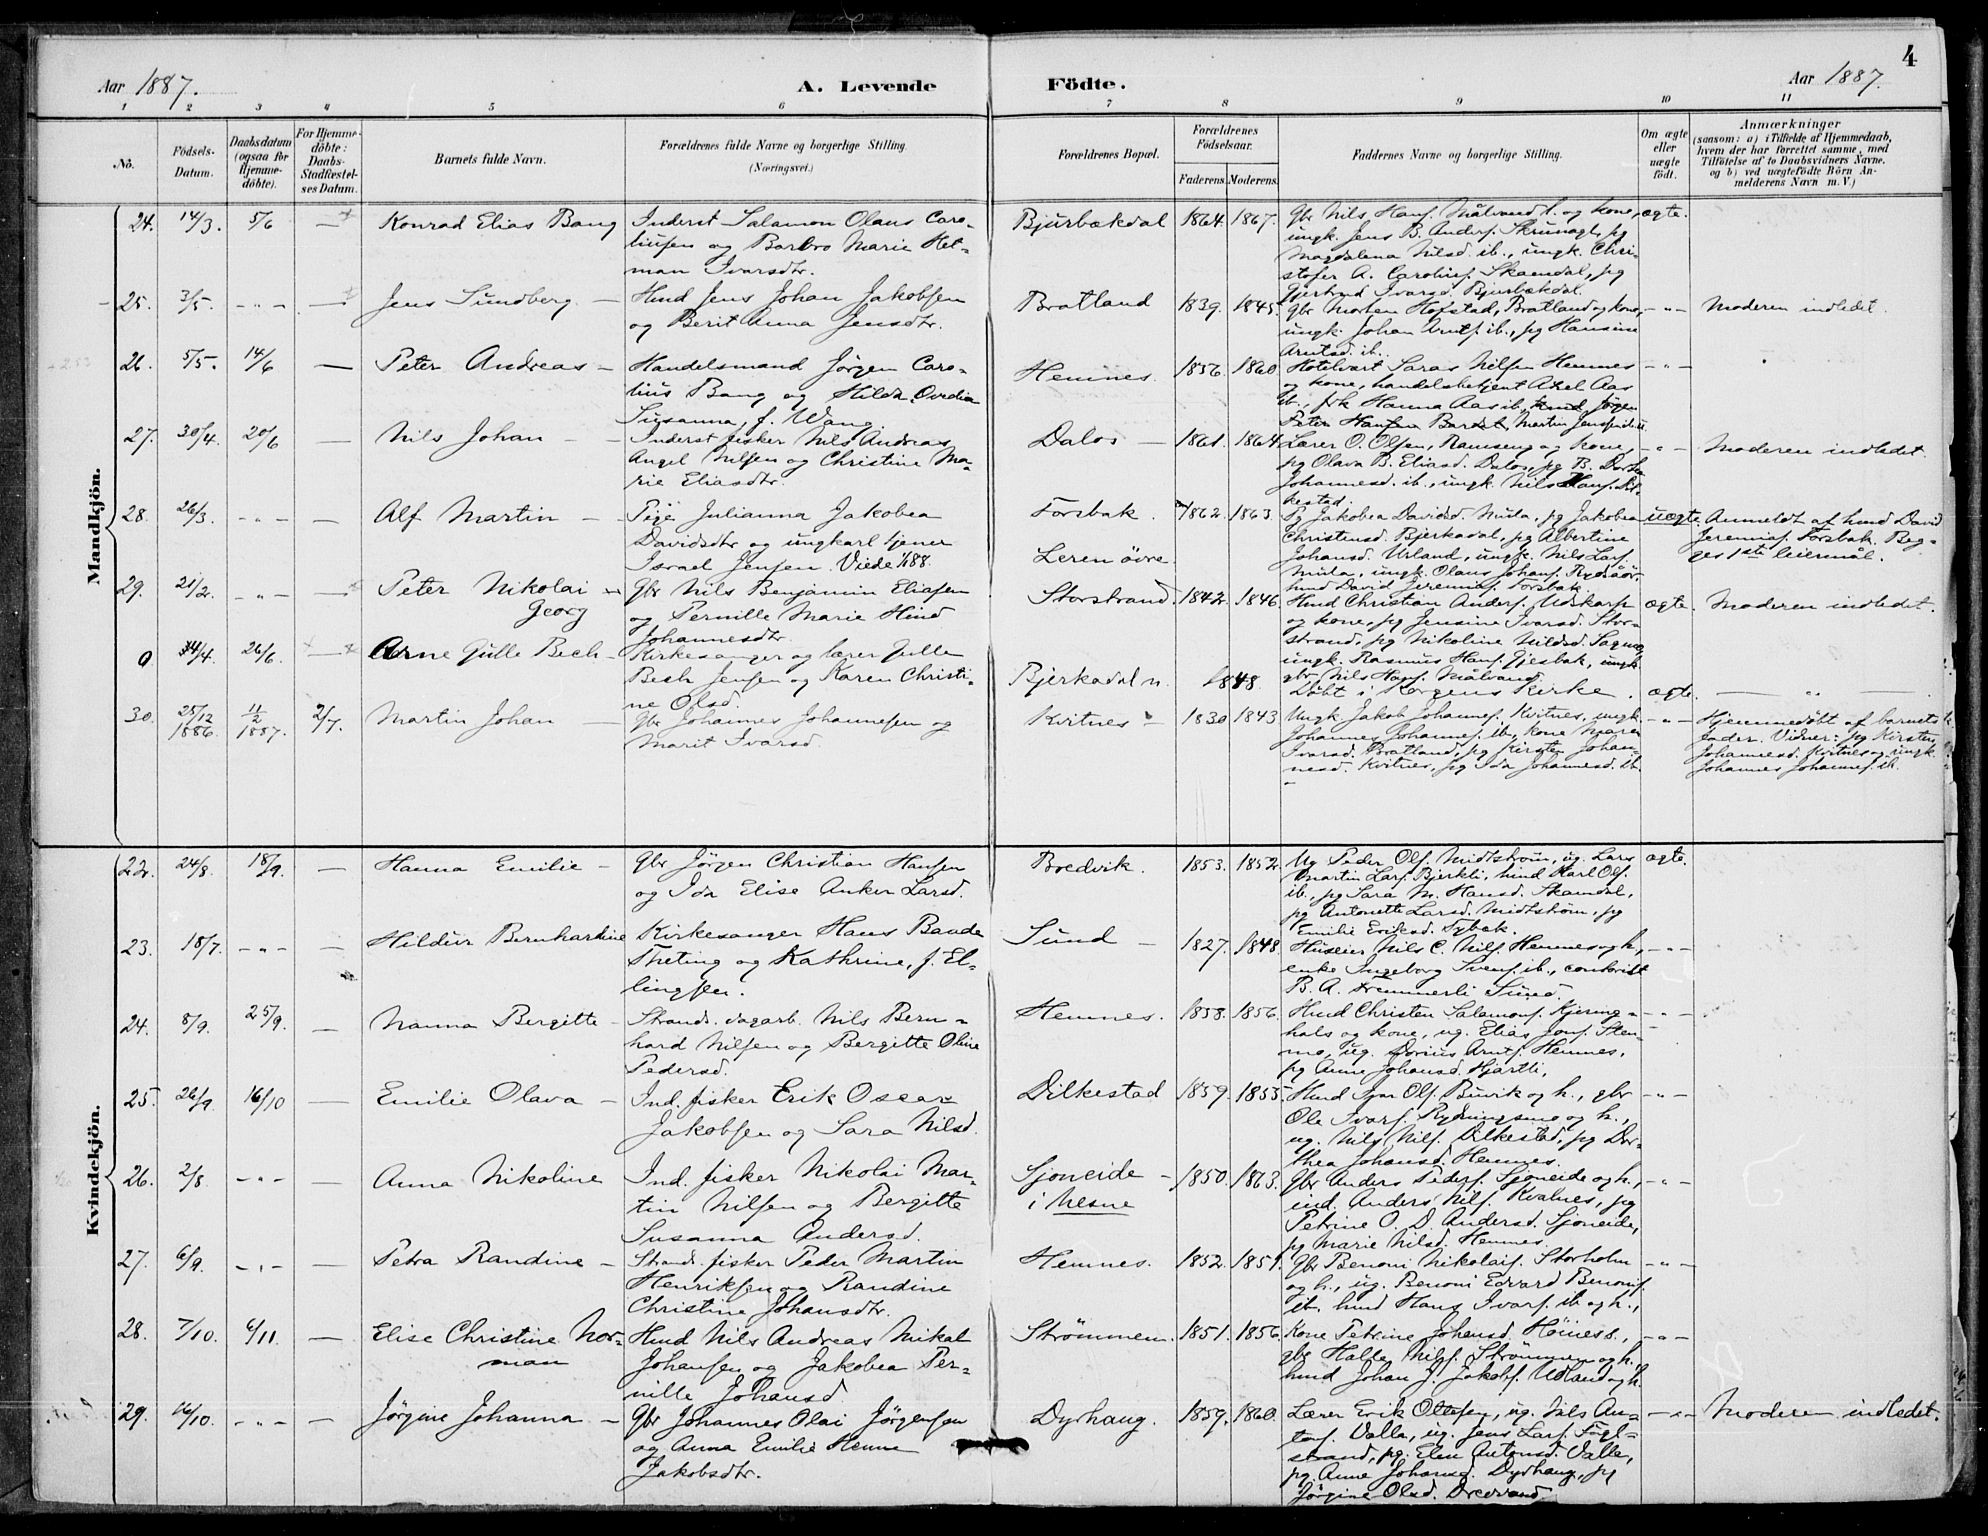 4
Aar 1887. A. Levende Födte. Aar 1887.
1 2 3 4 5 6 7 8 9 10 11
No. Födsels-Datum. Daabsdatum (ogsaa for Hjemme-döbte). For Hjemme-döbte: Daabs-Stadfæstel-ses Datum. Barnets fulde Navn. Forældrenes fulde Navne og borgerlige Stilling. (Næringsvei.) Forældrenes Bopæl. Forældrenes Födselsaar. Faderens. Moderens. Faddernes Navne og borgerlige Stilling. Om ægte eller uægte födt. Anmærkninger (saasom: a) i Tilfælde af Hjemmedaab, hvem der har forrettet samme, med Tilföielse af to Daabsvidners Navne. og b) ved uægtefödte Börn An-melderens Navn m. V.)
Mandkjön.
24. 14/3. 5/6 — Konrad Elias Bang
Inderst Salamon Olaus Caro-
liusen og Barbro Marie Het-
man Ivarsdtr.
Bjurbækdal 1864. 1867.
Gbr Nils Hans. Målvand l. og kone,
ungk. Jens B. Anders. Skrunagl, pg
Magdalena Nilsd. ib., ungk. Chri-
stofer A. Carolius. Skamdal, pg
Gjertrud Ivarsd. Bjurbækdal.
ægte.
25. 3/5. -"- — Jens Sundberg —
Hmd Jens Johan Jakobsen
og Berit Anna Jensdtr.
Bratland 1839. 1845.
Gbr Morten Hofstad, Bratland og kone,
ungk. Johan Arnts. ib., pg Hansine
Arntsd. ib.
-"- Moderen indledet.
26. 5/5. 14/6 — Peter Andreas —
Handelsmand Jørgen Caro-
lius Bang og Hilda Ovedia
Susanna f. Wang.
Hemnes. 1856. 1860.
Hotelvært Saras Nilsen Hemnes
og kone, handelsbetjent Axel Aas
ib., frk Hanna Aas ib., hmd Jørgen
Peter Hansen
-"-
27. 30/4. 20/6 — Nils Johan —
Inderst fisker Nils Andreas
Angel Nilsen og Christine Ma-
rie Eliasdtr.
Dalos — 1861. 1864.
Lærer O. Olsen, Ramseng og kone,
pg Olava B. Eliasd. Dalos, pg B. Dorthea
Johannesd. ib., ungk. Nils Hans. Dil-
kestad.
-"- Moderen indledet.
28. 26/3. -"- — Alf Martin —
Pige Julianna Jakobea
Davidsdtr og ungkarl tjener
Israel Jensen. Viede 1/88.
Forsbak.
Leren øvre.
1862. 1863.
Pg Jakobea Davidsd. Mula, pg Jakobea
Christensd. Bjerkadal, pg Albertine
Johansd. Urland, ungk. Nils Lars.
Mula, ungk. Olaus Johans. Rydsåør,
hmd David Jeremias. Forsbak.
uægte. Anmeldt af hmd David
Jeremias. Forsbak. Beg-
ges 1ste leiermål.
29. 21/2. -"- — Peter Nikolai
Georg
Gbr Nils Benjamin Eliasen
og Pernille Marie Hind
Johannesdtr.
Storstrand. 1842. 1846.
Hmd Christian Anders. Udskarp
og kone, pg Jensine Ivarsd. Stor-
strand, pg Nikoline Nilsd. Sagmo,
ungk. Rasmus Hans. Gjesbak, ungk.
gbr Nils Hans. Målvand.
ægte. Moderen indledet.
0 4/4. 26/6. — Arne Gulle Bech —
Kirkesanger og lærer Julle
Bech Jensen og Karen Christi-
ne Olsd.
Bjerkadal n. 1848.
Døbt i Korgens Kirke.
ægte. — " —
30. 25/12 1886. 11/2 1887. 2/7. Martin Johan —
Gbr Johannes Johannesen og
Marit Ivarsd.
Kvitnes — 1830 1843
Ungk Jakob Johannes. Kvitnes, ungk.
Johannes Johannes. ib., kone Maren
Ivarsd. Bratland, pg Kirsten Johan-
nesd. Kvitnes, pg Ida Johannesd. ib.
-"- Hjemmedøbt af barnets
fader. Vidner: pg Kirsten
Johannesd. Kvitnes og ungk.
Johannes Johannes. ib.
Kvindekjön.
22. 24/8. 18/9. — Hanna Emilie —
Gbr Jörgen Christian Hansen
og Ida Elise Anker Larsd.
Bredvik. 1853. 1852.
Ug Peder Ols. Midtstrøm, ug. Lars
Martin Lars. Bjerkli, hmd Karl Ols.
ib., pg Sara M. Hansd. Skamdal,
pg Antonette Larsd. Midtstrøm, pg
Emilie Eriksd. Sybek.
ægte.
23. 18/7. -"- — Hildur Bernhardine
Kirkesanger Hans Baade
Theting og Kathrine, f. El-
lingsen.
Sund — 1827. 1848.
Huseier Nils C. Nils. Hemnes og h.,
enke Ingeborg Svens. ib., contorist
B. A. Fremmerli Sund.
-"-
24. 8/9. 25/9. — Nanna Bergitte —
Strands. dagarb. Nils Bern-
hard Nilsen og Bergitte Oline
Pedersd.
Hemnes. 1858. 1856.
Hmd Christen Salamons. Kjering-
hals og kone, ug. Elias Jons. Sten-
mo, ug. Dorius Arnts. Hemnes,
pg Anne Johansd. Hjartli,
-"-
25. 26/9. 16/10 — Emilie Olava —
Ind. fisker Erik Oscar
Jakobsen og Sara Nilsd.
Dilkestad 1859. 1855.
Hmd Ivar Ols. Buvik og h., gbr
Ole Ivars. Rydningsmo og h.,
ug. Nils Nils. Dilkestad, pg Dor-
thea Johansd. Hemnes.
-"-
26. 2/8. -"- — Anna Nikoline
Ind. fisker Nikolai Mar-
tin Nilsen og Bergitte
Susanna Andersd.
Sjoneide —
i Nesne
1850. 1863.
Gbr Anders Peders. Sjoneide og h.,
ind. Anders Nils. Kvalnes, pg
Petrine O. D. Andersd. Sjoneide,
pg Marie Nilsd. Hemnes.
-"-
27. 6/9. -"- — Petra Randine —
Strand. fisker Peder Martin
Henriksen og Randine
Christine Johansdtr.
Hemnes. 1852. 1851.
Gbr Benoni Nikolais. Storholm
og h., ug. Benoni Edvard Benonis.
ib. hmd Hans Ivars. ib og h.,
-"-
28. 7/10. 6/11. — Elise Christine Nor-
man
Hmd Nils Andreas Mikal
Johansen og Jakobea Per-
nille Johansd.
Strømmen. 1851. 1856.
Kone Petrine Johansd. Høines.,
gbr Halle Nils. Strømmen og h.,
hmd Johan J. Jakobs. Udland og h.
-"-
29. 16/10. -"- — Jørgine Johanna —
Gbr Johannes Olai Jørgensen
og Anna Emilie Hemne
Jakobsdtr.
Dyrhaug. 1859. 1860.
Lærer Erik Ottesen, ug. Nils An-
tons. Valla, ug. Jens Lars. Fögl-
strand, pg. Elen Antonsd. Valle,
pg. Anne Johansd. Dyrhaug, pg
Jørgine Olsd.
-"- Moderen indledet.